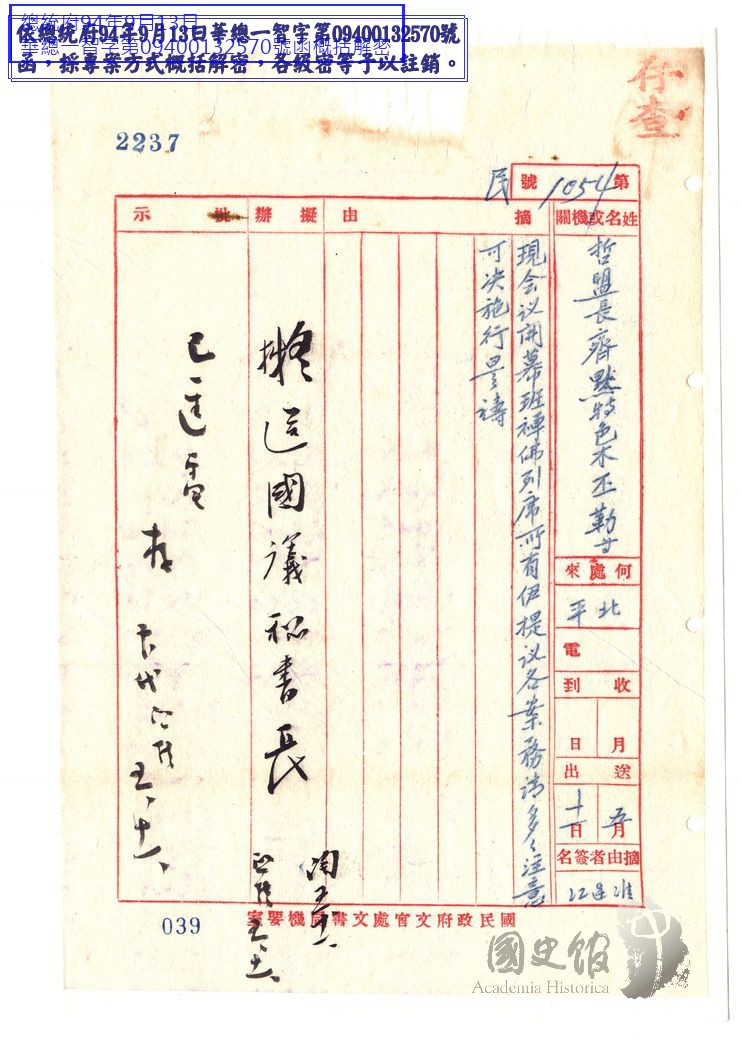 總統府94年9月13日
華總一智字第09400132570號函概括解密
依總統府94年9月13日華總一智字第09400132570號
函，採專案方式概括解密，各級密等予以註銷。
存查
2237
第1054號
民
姓名或機關
哲盟長齊默特色木丕勒等
何處來
北平
電
收到
月日
送出
五月十一日
摘由者簽名
摘由
現会议開幕班禅佛列席所有伊提议各案務請多多注意
可决施行是禱
擬辦
擬送國議秘書長
批示
已送電
存
五、十一、
國民政府文官處文書局機要室
039
國史館
Academia Historica